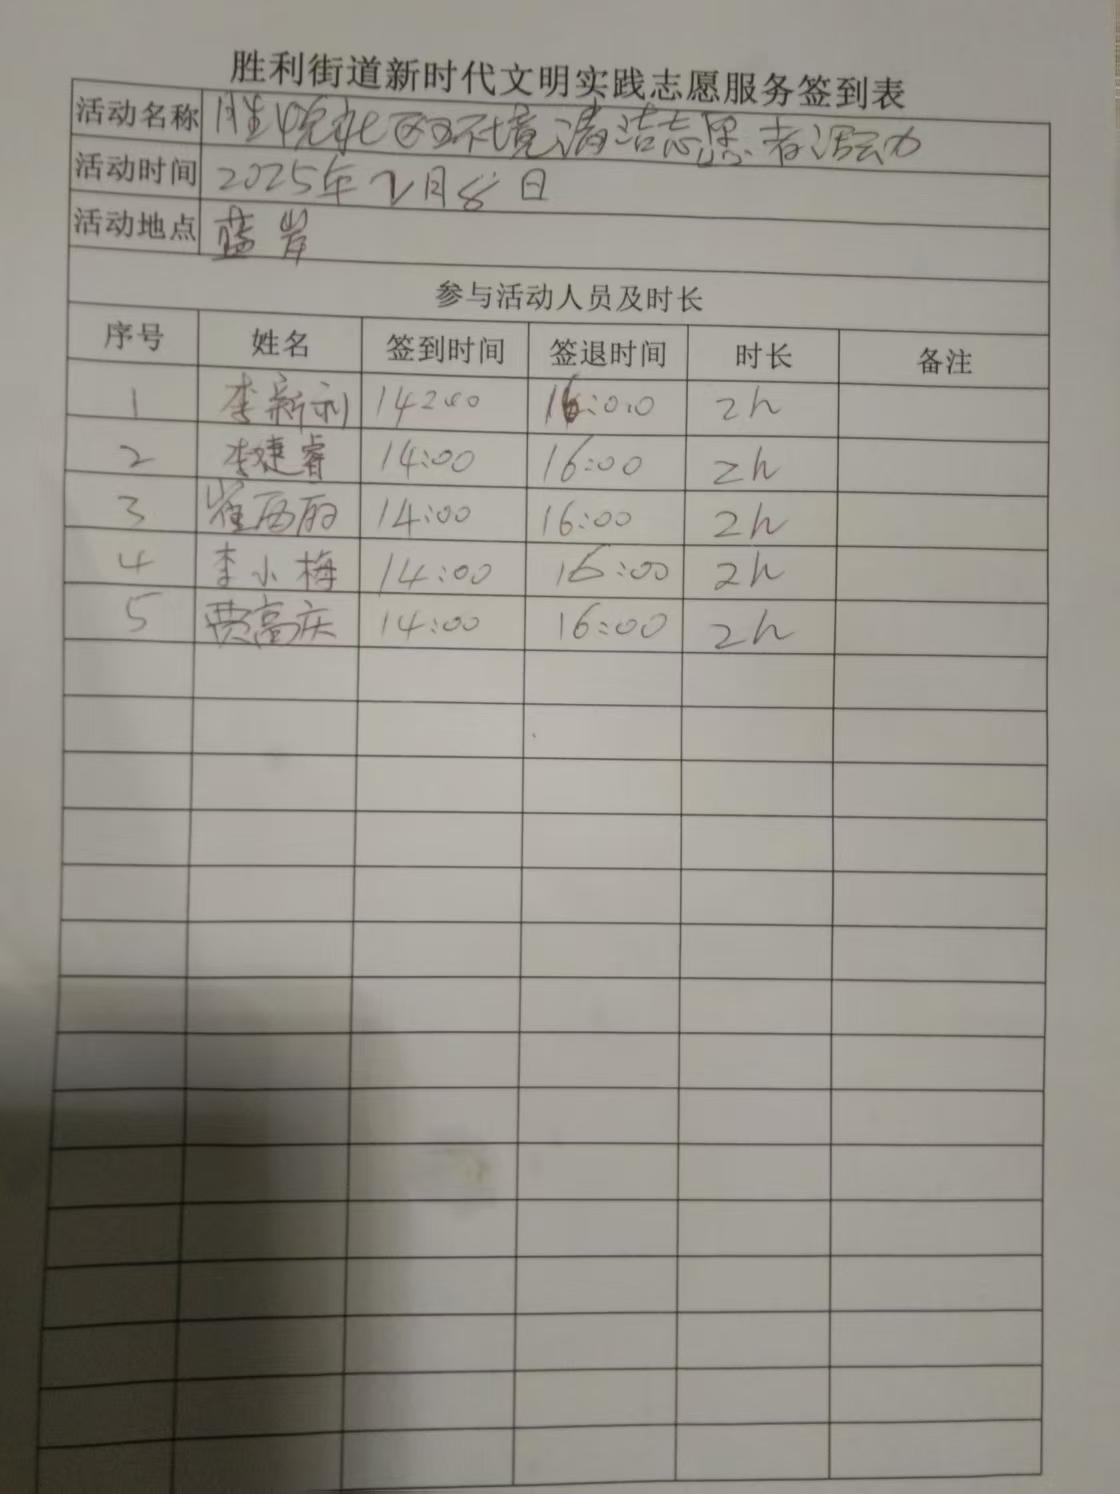 胜利街道新时代文明实践志愿服务签到表
活动名称 胜悦社区环境清洁志愿者活动
活动时间 2025年2月8日
活动地点 蓝岸
参与活动人员及时长
序号 姓名 签到时间 签退时间 时长 备注
1 李新利 14:00 16:00 2h
2 李婕睿 14:00 16:00 2h
3 崔西雨 14:00 16:00 2h
4 李小梅 14:00 16:00 2h
5 贾高庆 14:00 16:00 2h